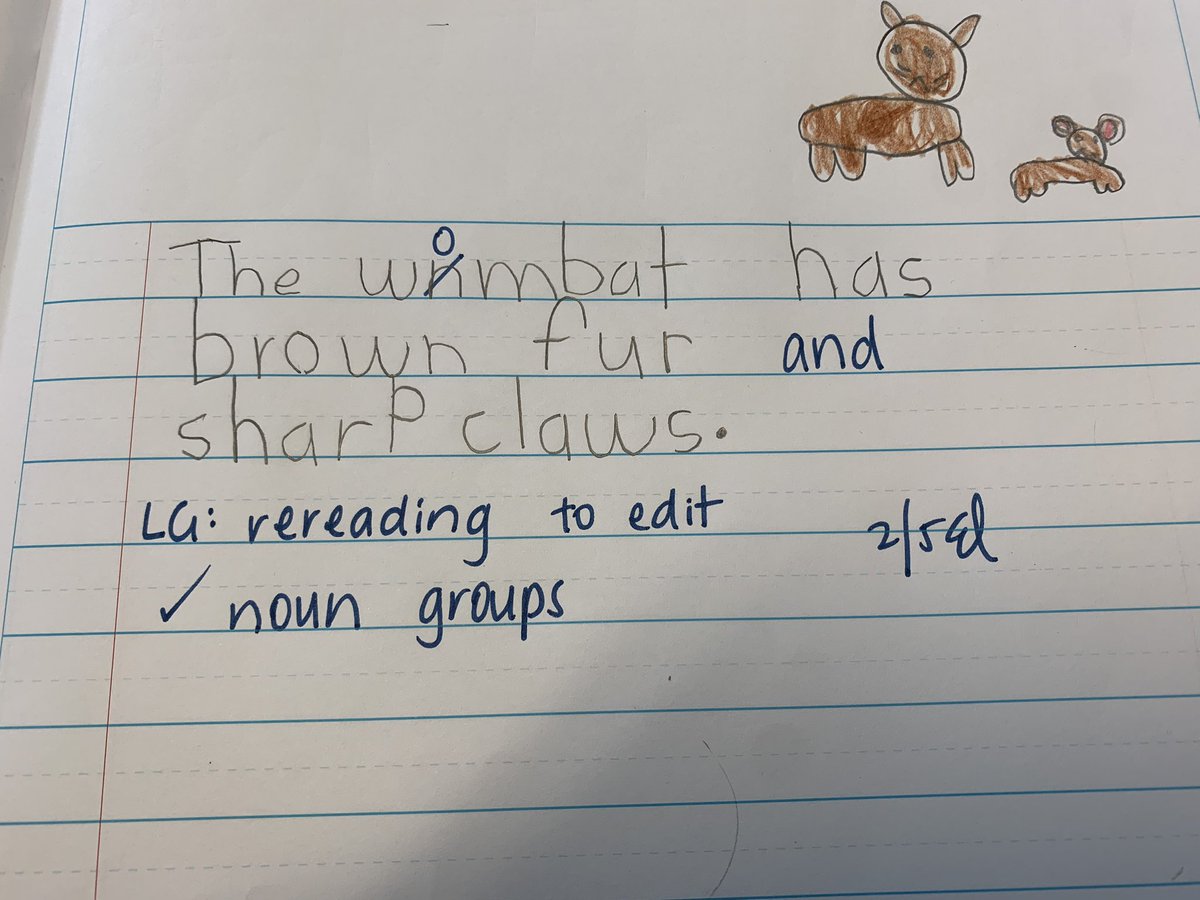 The wombat has
brown fur and
sharp claws.
LG: rereading to edit
2/5
✓ noun groups